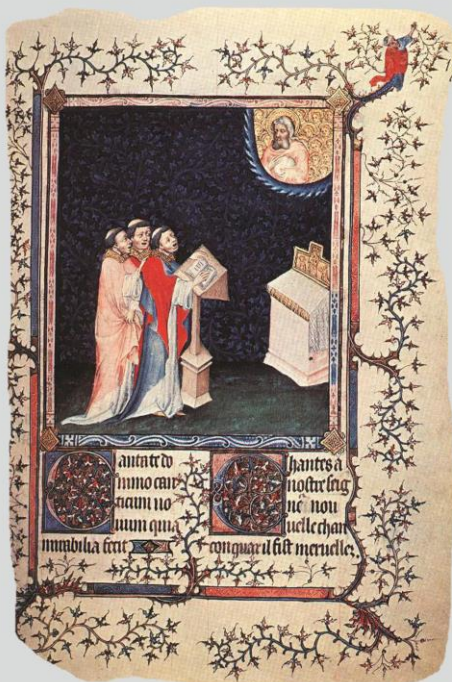 Cantate do
mino can
ticum no
uum quia
mirabilia fecit
Chantes a
nostre seig
nou
uelle chan
con quar il fist merueilles